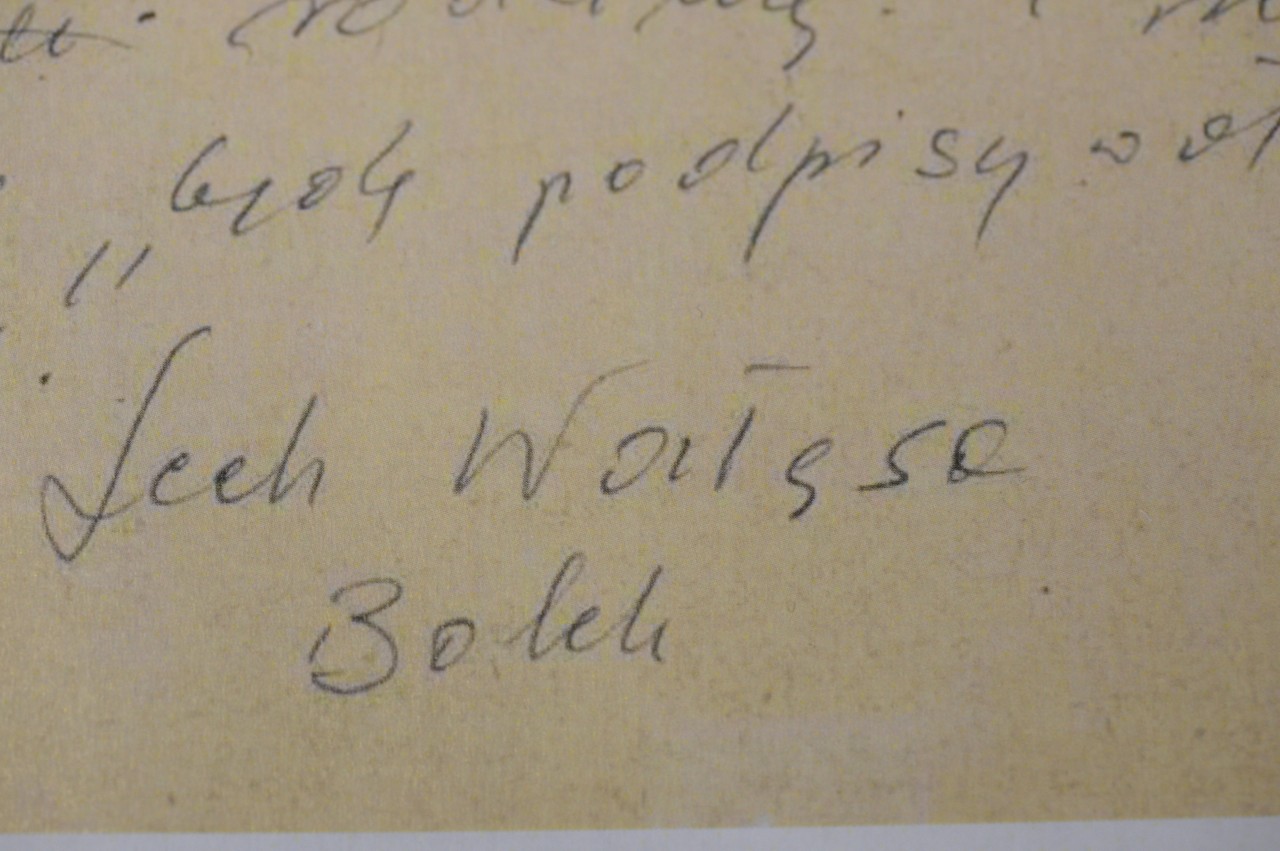 będę podpisywał
"
Lech Wałęsa
Bolek